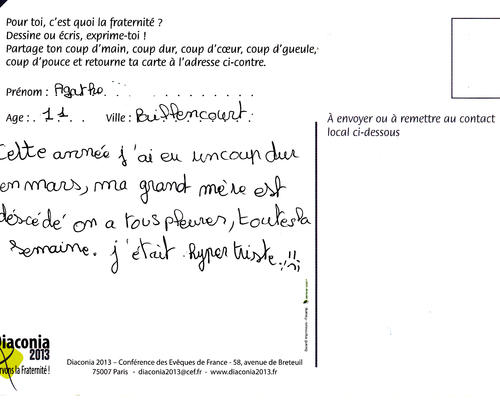 Pour toi, c'est quoi la fraternité ?
Dessine ou écris, exprime-toi !
Partage ton coup d'main, coup dur, coup d'cœur, coup d'gueule,
coup d'pouce et retourne ta carte à l'adresse ci-contre.
Prénom : Agathe
Age : 11 Ville :
À envoyer ou à remettre au contact
local ci-dessous
Cette année j'ai eu un coup dur
en mars, ma grand mère est
déscédé on a tous pleures, toutes la
semaine. j'était hyper triste.
Diaconia
2013
rvons la Fraternité !
Diaconia 2013 – Conférence des Evêques de France - 58, avenue de Breteuil
75007 Paris - diaconia2013@cef.fr - www.diaconia2013.fr